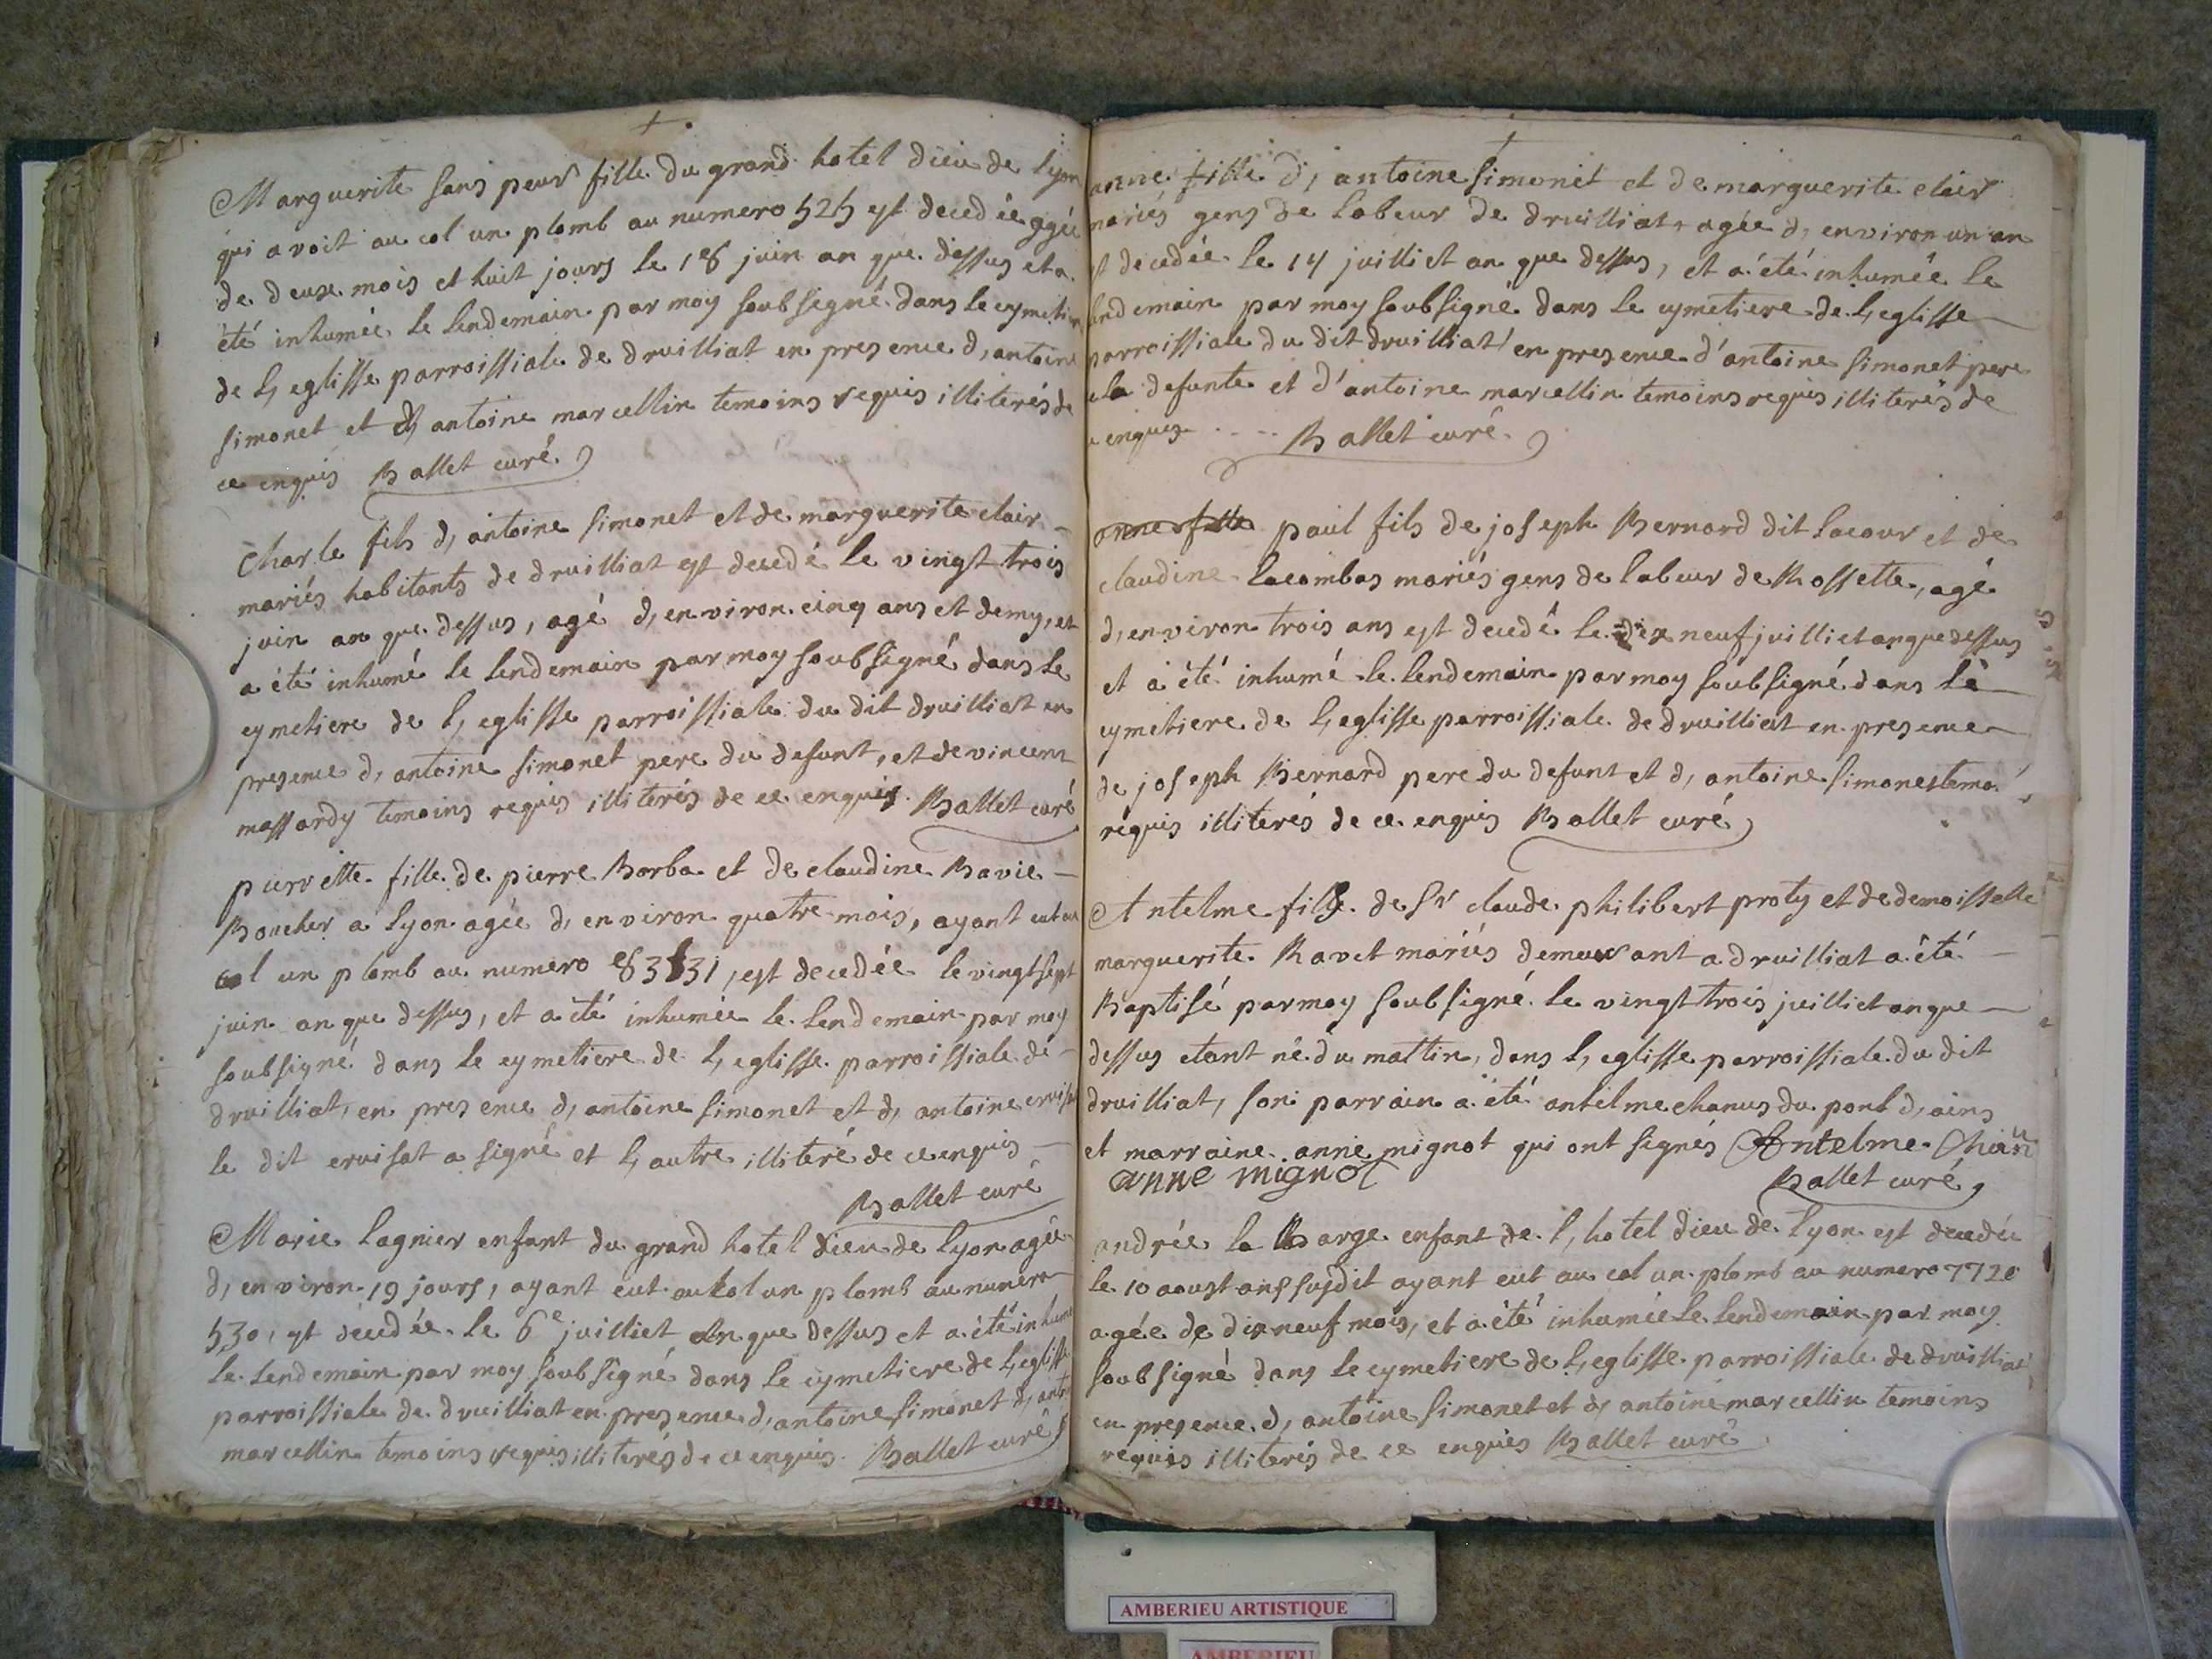 Marguerite sans peur fille du grand hotel dieu de lyon
qui avoit au col un plomb au numero 525 est decedée agée
de deux mois et huit jours le 18 juin an que dessus et a
été inhumée le lendemain par moy soubsigné dans le cymetiere
de l, eglisse parroissiale de druilliat en presence d, antoine
simonet et d, antoine marcellin temoins requis illiterés de
ce enquis Ballet curé
Charle fils d, antoine simonet et de marguerite clair
mariés habitants de druilliat est decedé le vingt trois
juin an que dessus, agé d, environ cinq ans et demy, et
a été inhumé le lendemain par moy soubsigné dans le
cymetiere de l, eglisse parroissiale du dit druilliat en
presence d, antoine simonet pere du defunt, et de vincent
massardy temoins requis illiterés de ce enquis. Ballet curé
pierrette fille de pierre Barba et de claudine Bavie
Boucher a lyon agée d, environ quatre mois, ayant eut au
col un plomb au numero, est decedée le vingt sept
juin an que dessus, et a été inhumée le lendemain par moy
soubsigné dans le cymetiere de l, eglisse parroissiale de
druilliat, en presence d, antoine simonet et d, antoine
le dit eruisat a signé et l, autre illiteré de ce enquis
Ballet curé
Marie lagnier enfant du grand hotel dieu de lyon agée
d, environ 19 jours, ayant eut au kol un plomb au numero
530, est decedée le 6e juilliet an que dessus et a été inhumée
le lendemain par moy soubsigné dans le cymetiere de l, eglisse
parroissiale de druilliat en presence d, antoine simonet d, antoi
marcellin temoins requis illiterés de ce enquis. Ballet curé
anne fille d, antoine simonet et de marguerite clair
mariés gens de labeur de druilliat, agée d, environ un an
est decedée le 14 juilliet an que dessus, et a été inhumée le
lendemain par moy soubsigné dans le cymetiere de l, eglisse
parroissiale du dit druilliat en presence d'antoine simonet pere
de la defunte et d'antoine marcellin temoins requis illiterés de
ce enquis Ballet curé
anne fille paul fils de joseph Bernard dit lacour et de
claudine lacombas mariés gens de labeur de Rossette, agé
d, environ trois ans est decedé le dix neuf juilliet an que dessus
et a été inhumé le lendemain par moy soubsigné dans le
cymetiere de l, eglisse parroissiale de druilliat en presence
de joseph Bernard pere du defunt et d, antoine simonet temo.
requis illiterés de ce enquis Ballet curé
Antelme fils de Sr claude philibert proty et de demoisselle
marguerite Ravet mariés demeurant a druilliat a été
Baptisé par moy soubsigné le vingt trois juilliet an que
dessus etant né du mattin, dans l, eglisse parroissiale du dit
druilliat, son parrain a été antelme chanus du pont d, ains
et marraine anne mignot qui ont signés Antelme
anne mignot
Ballet curé
andrée la Barge enfant de l, hotel dieu de lyon est decedée
le 10 aoust an susdit ayant eut au col un plomb au numero 7720
agée de dix neuf mois, et a été inhumée le lendemain par moy
soubsigné dans le cymetiere de l, eglisse parroissiale de druilliat
en presence d, antoine simonet et d, antoine marcellin temoins
requis illiterés de ce enquis Ballet curé
AMBERIEU ARTISTIQUE
AMBERIEU